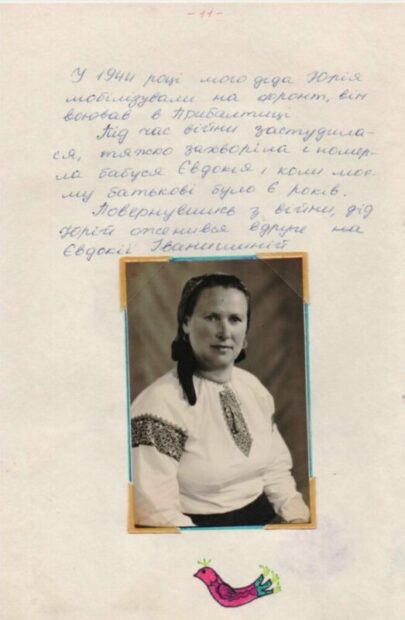 - 11 -
У 1944 році мого діда Юрія
мобілізували на фронт, він
воював в Прибалтиці
Під час війни застудила-
ся, тяжко захворіла і помер-
ла бабуся Євдокія, коли моє-
му батькові було 6 років.
Повернувшись з війни, дід
Юрій оженився вдруге на
Євдокії Іванишиній